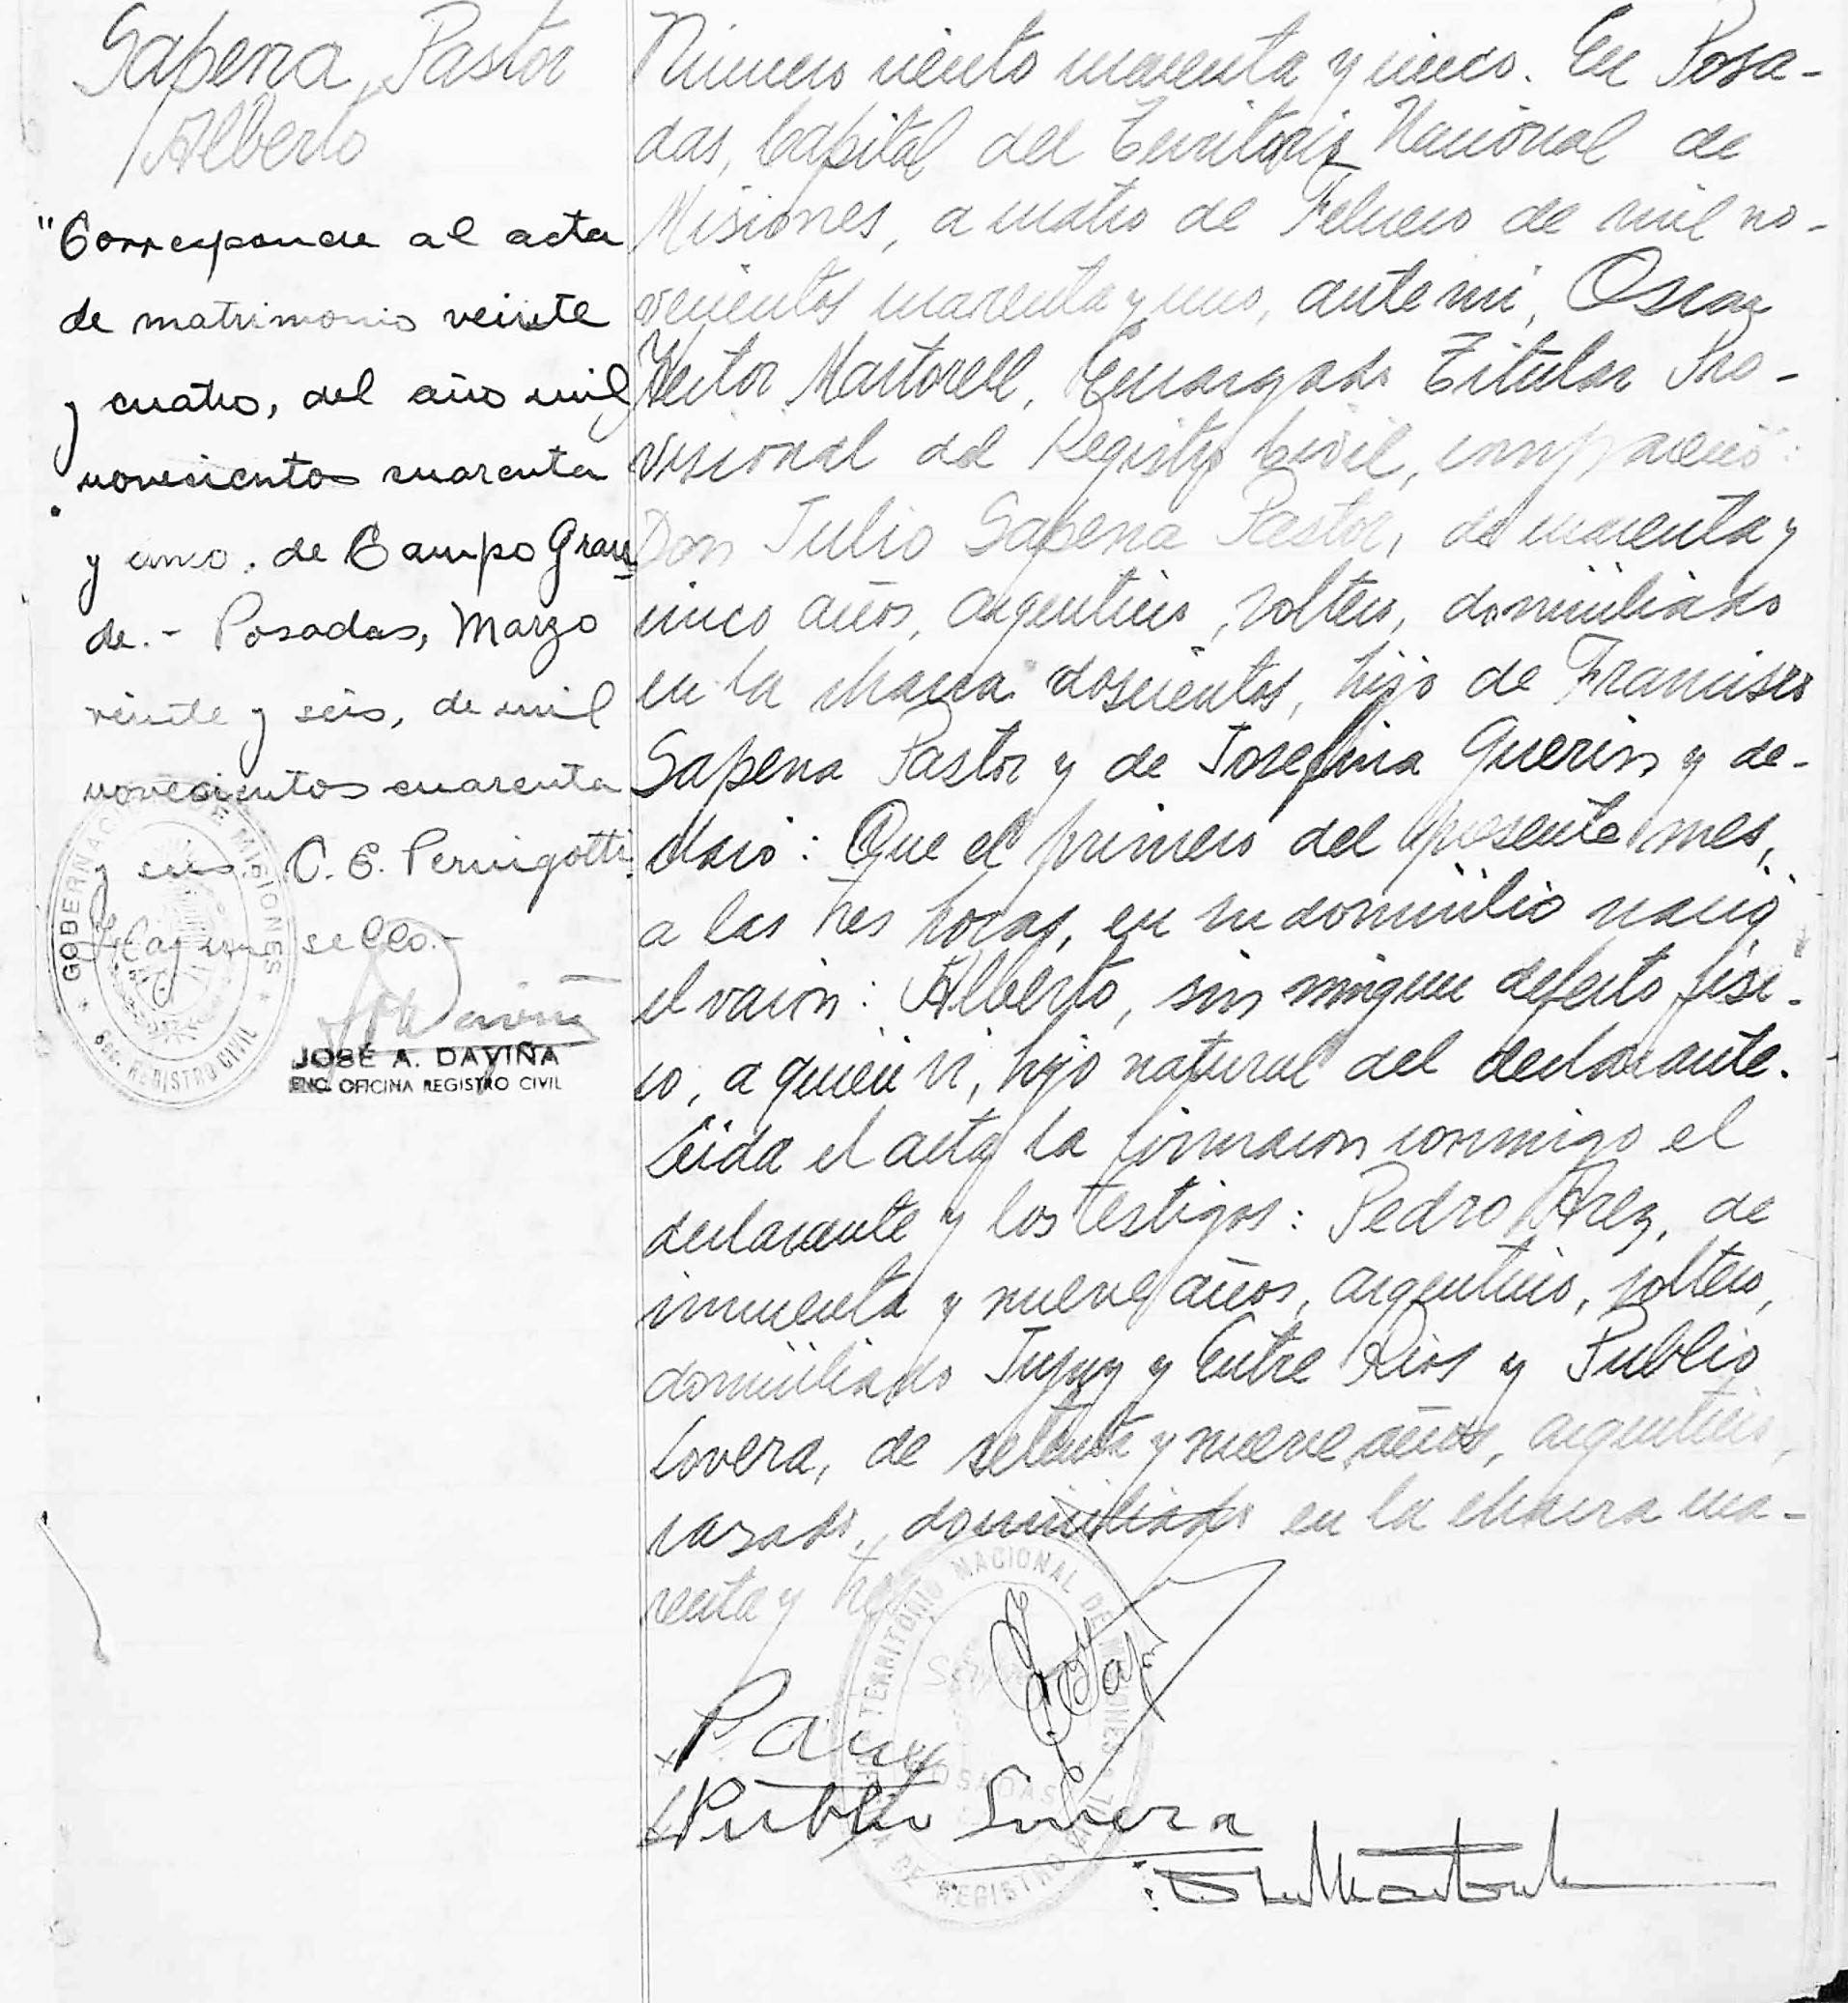 Sapena Pastor
Alberto
"Corresponde al acta
de matrimonio veinte
y cuatro, del año mil
novecientos cuarenta
y cinco. de Campo Gran
de.- Posadas, Marzo
veinte y seis, de mil
novecientos cuarenta
y seis C. E. Pernigotti.
Hay un sello.-
JOSÉ A. DAVIÑA
ENC. OFICINA REGISTRO CIVIL
GOBERNACION DE MISIONES
REGISTRO CIVIL
Número ciento cuarenta y cinco. En Posa-
das, Capital del Territorio Nacional de
Misiones, a cuatro de Febrero de mil no-
vecientos cuarenta y uno, ante mi, Oscar
Hector Martorell, Encargado Titular Pro-
visional del Registro Civil, compareció:
Don Julio Sapena Pastor, de cuarenta y
cinco años, argentino, soltero, domiciliado
en la chacra doscientos, hijo de Francisco
Sapena Pastor y de Josefina Guerin y de-
claró: Que el primero del presente mes,
a las tres horas, en su domicilio nació
el varón: Alberto, sin ningun defecto físi-
co, a quien vi, hijo natural del declarante.
Leida el acta la firmaron conmigo el
declarante y los testigos: Pedro Arez, de
cincuenta y nueve años, argentino, soltero,
domiciliado Jujuy y Entre Rios y Publio
Lovera, de setenta y nueve años, argentino,
casado, domiciliado en la chacra cua-
renta y tres
TERRITORIO NACIONAL DE MISIONES
POSADAS
DE REGISTRO CIVIL
Publio Lovera